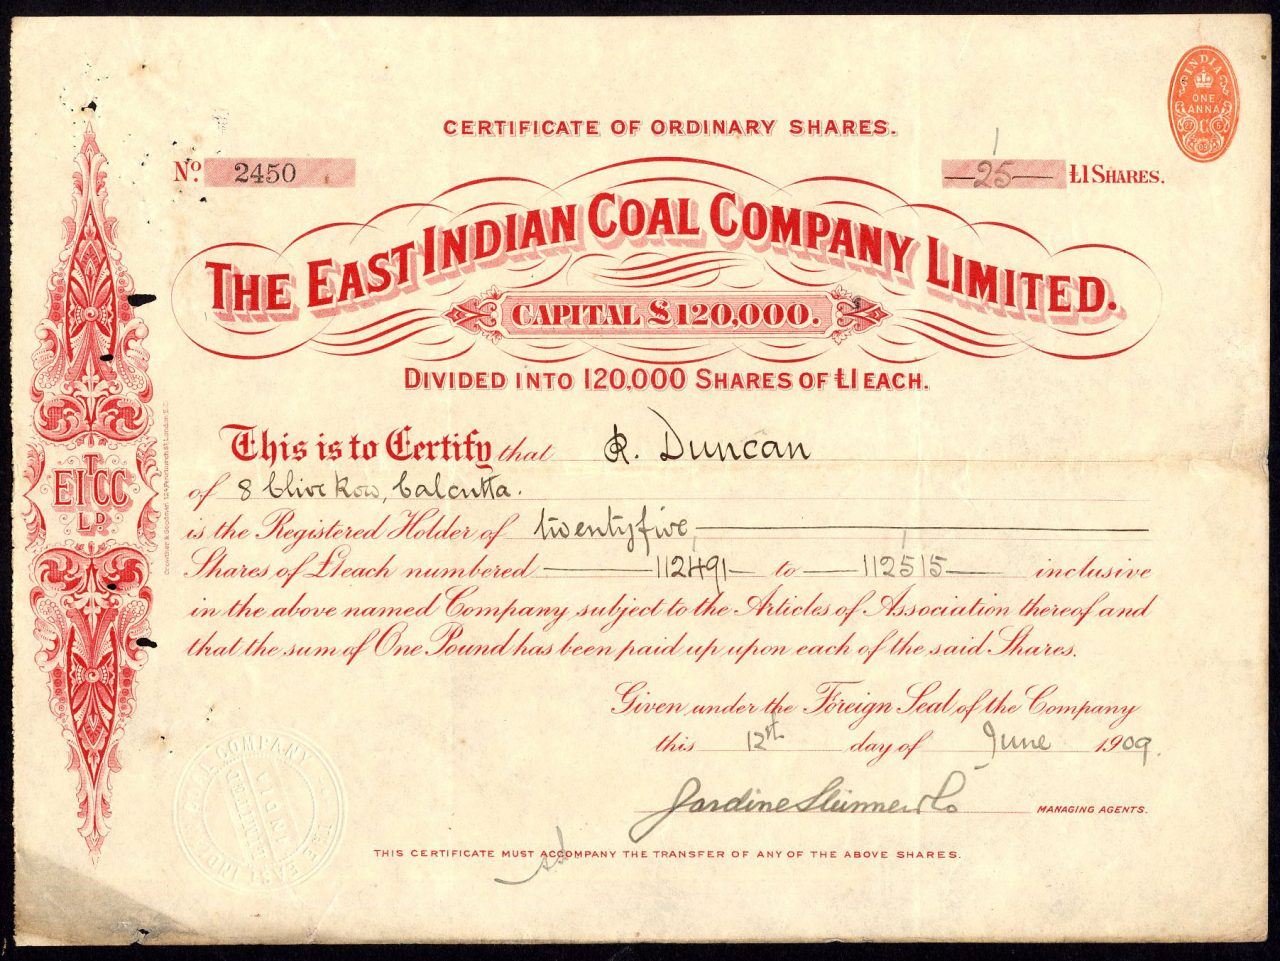 INDIA
ONE
ANNA
CERTIFICATE OF ORDINARY SHARES.
No. 2450
25 £1 SHARES.
THE EAST INDIAN COAL COMPANY LIMITED.
CAPITAL £120,000.
DIVIDED INTO 120,000 SHARES OF £1 EACH.
This is to Certify that R. Duncan
of 8 Clive Row, Calcutta.
is the Registered Holder of twentyfive
Shares of £1 each numbered 112491 to 112515 inclusive
in the above named Company subject to the Articles of Association thereof and
that the sum of One Pound has been paid up upon each of the said Shares.
Given under the Foreign Seal of the Company
this 12th day of June 1909.
Jardine Skinner & Co MANAGING AGENTS.
THIS CERTIFICATE MUST ACCOMPANY THE TRANSFER OF ANY OF THE ABOVE SHARES.
T
EICC
LD.
THE EAST INDIAN COAL COMPANY
LIMITED
INDIA